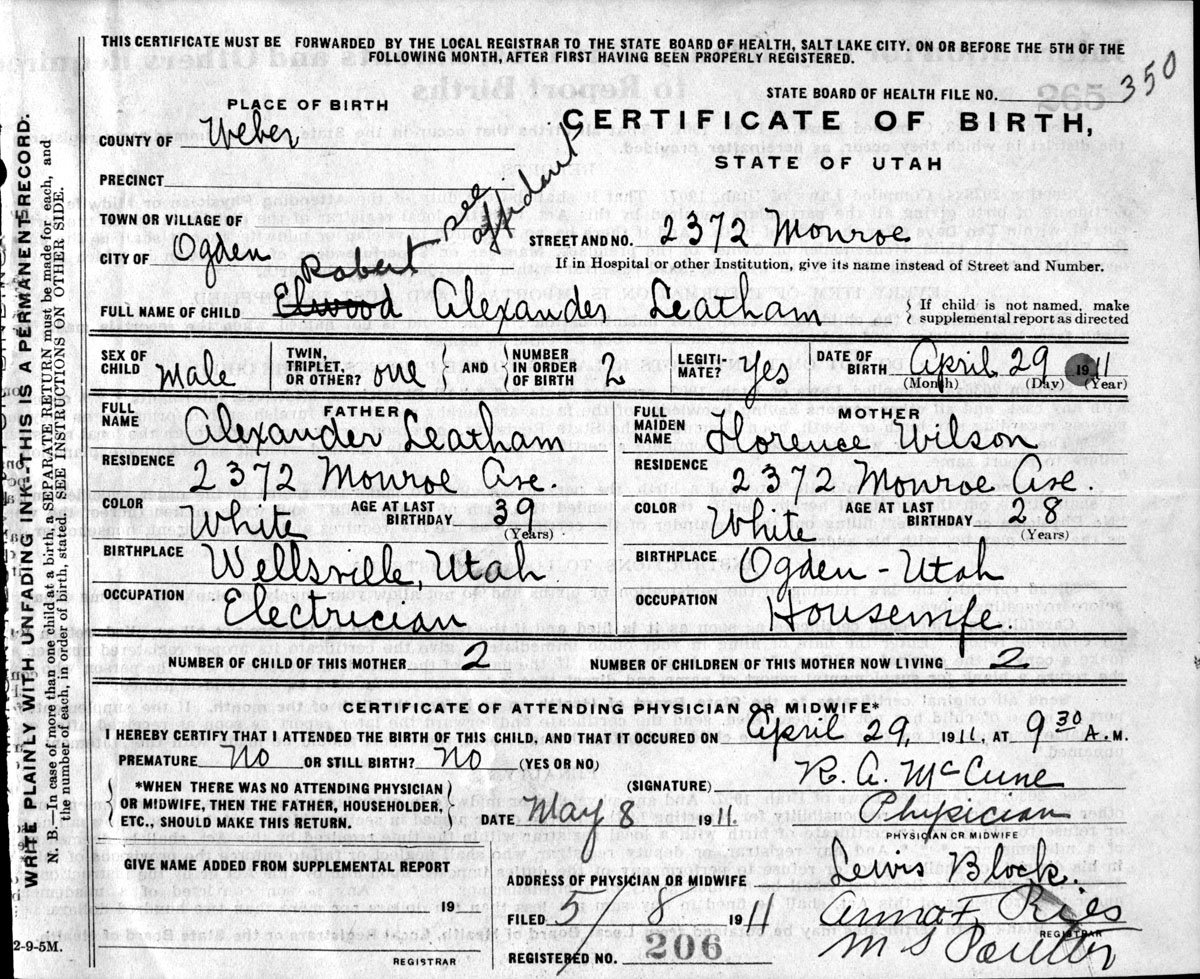 THIS CERTIFICATE MUST BE FORWARDED BY THE LOCAL REGISTRAR TO THE STATE BOARD OF HEALTH, SALT LAKE CITY. ON OR BEFORE THE 5TH OF THE
FOLLOWING MONTH, AFTER FIRST HAVING BEEN PROPERLY REGISTERED.
STATE BOARD OF HEALTH FILE NO. 350
PLACE OF BIRTH
CERTIFICATE OF BIRTH,
STATE OF UTAH
COUNTY OF Weber
PRECINCT
TOWN OR VILLAGE OF
see affidavit
CITY OF Ogden
STREET AND NO. 2372 Monroe
If in Hospital or other Institution, give its name instead of Street and Number.
Robert
FULL NAME OF CHILD Elwood Alexander Leatham
If child is not named, make
supplemental report as directed
SEX OF CHILD Male TWIN, TRIPLET, OR OTHER? one AND NUMBER IN ORDER OF BIRTH 2 LEGITIMATE? Yes DATE OF BIRTH April 29 1911
(Month) (Day) (Year)
FATHER
FULL NAME Alexander Leatham
RESIDENCE
2372 Monroe Ave.
COLOR White AGE AT LAST BIRTHDAY 39
(Years)
BIRTHPLACE Wellsville, Utah
OCCUPATION Electrician
MOTHER
FULL MAIDEN NAME Florence Wilson
RESIDENCE
2372 Monroe Ave.
COLOR White AGE AT LAST BIRTHDAY 28
(Years)
BIRTHPLACE Ogden - Utah
OCCUPATION Housewife
NUMBER OF CHILD OF THIS MOTHER 2 NUMBER OF CHILDREN OF THIS MOTHER NOW LIVING 2
CERTIFICATE OF ATTENDING PHYSICIAN OR MIDWIFE*
I HEREBY CERTIFY THAT I ATTENDED THE BIRTH OF THIS CHILD, AND THAT IT OCCURED ON April 29, 1911, AT 9 30 A.M.
PREMATURE No OR STILL BIRTH? No (YES OR NO)
(SIGNATURE) R. A. McCune
*WHEN THERE WAS NO ATTENDING PHYSICIAN
OR MIDWIFE, THEN THE FATHER, HOUSEHOLDER,
ETC., SHOULD MAKE THIS RETURN.
DATE, May 8 1911. Physician
PHYSICIAN OR MIDWIFE
GIVE NAME ADDED FROM SUPPLEMENTAL REPORT
19
REGISTRAR
ADDRESS OF PHYSICIAN OR MIDWIFE Lewis Block.
FILED 5 8 1911 Anna F. Ries
REGISTRAR
REGISTERED NO. 206 M S
WRITE PLAINLY WITH UNFADING INK--THIS IS A PERMANENT RECORD.
N. B.—In case of more than one child at a birth, a SEPARATE RETURN must be made for each, and
the number of each, in order of birth, stated. SEE INSTRUCTIONS ON OTHER SIDE.
2-9-5M.